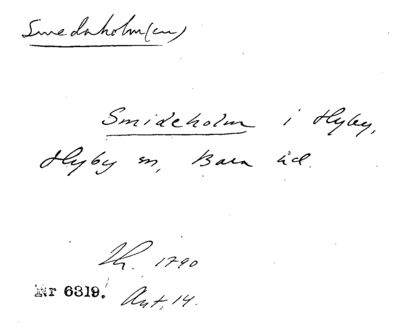 Smedsholm(en)
Smideholm i Hyby,
Hyby sn, Bara hd.
Th. 1790
Nr 6319. Ant. 14.